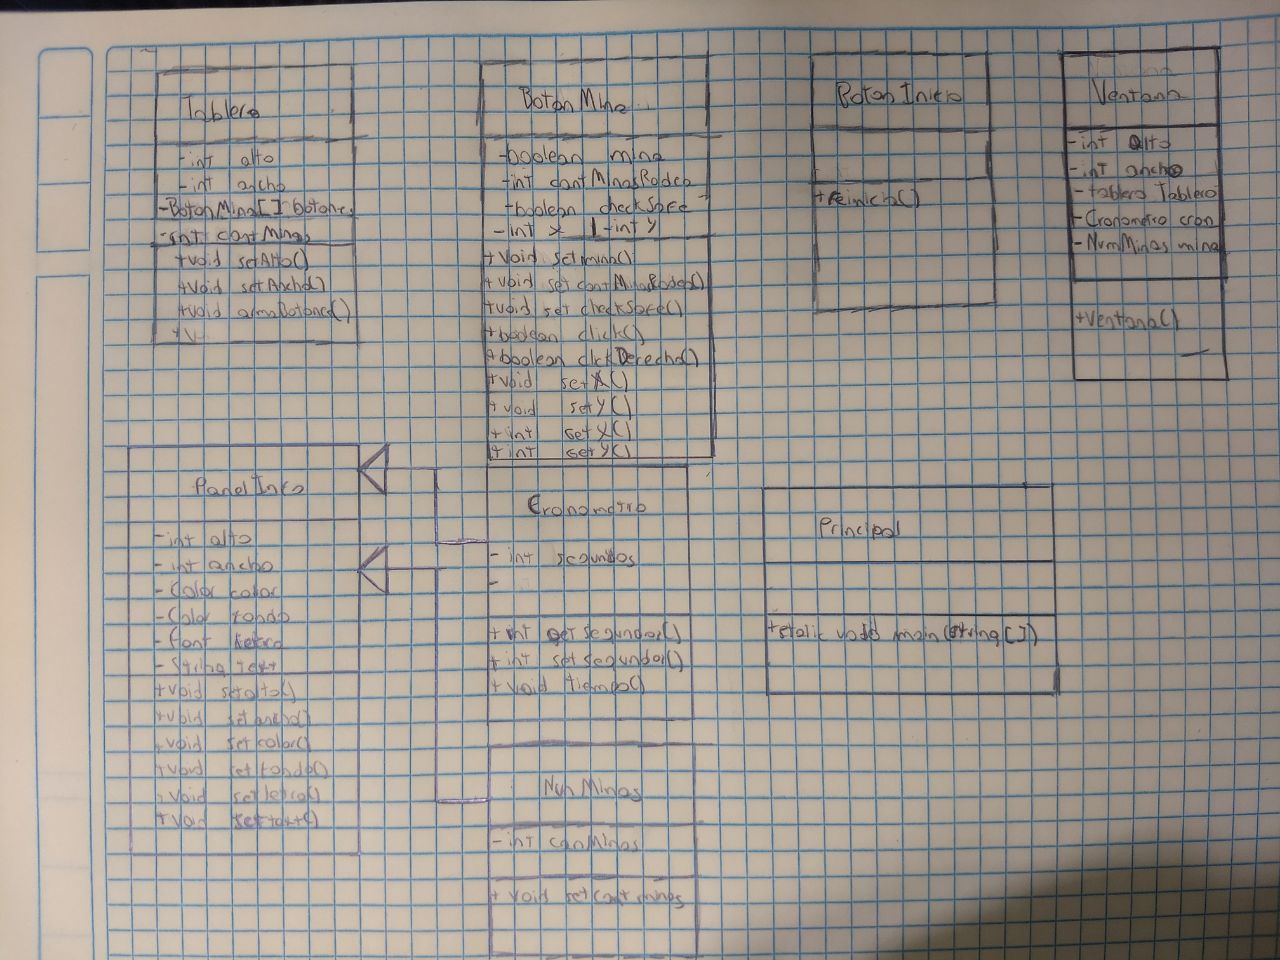 Tablero
-int alto
-int ancho
-BotonMina[] botone
-int cantMinas
+void setAlto()
+void setAncho()
+void armaBotones()
+V
BotonMina
-boolean mina
-int cantMinasRodea
-boolean checkSafe
-int x | -int y
+void setmina()
+void setcantMinaRodea()
+void set checkSafe()
+boolean click()
+boolean clickDerecho()
+void setX()
+void setY()
+int getX()
+int getY()
Boton Inicio
+reinicia()
Ventana
-int alto
-int ancho
-tablero Tablero
-Cronometro cron
-NumMinas mina
+Ventana()
Panel Info
-int alto
-int ancho
-Color color
-Color fondo
-Font
-String text
+void setalto()
+void setancho()
+void setcolor()
+void setfondo()
+void
+void settext()
Cronometro
-int segundos
-
+int getsegundos()
+int setsegundos()
+void tiempo()
Principal
+static void main(String[])
Num Minas
-int canMinas
+void setCantminas